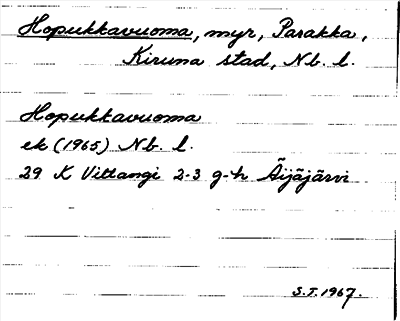 Hopukkavuoma, myr, Parakka,
Kiruna stad, Nb. l.
Hopukkavuoma
ek (1965) Nb. l.
29 K Vittangi 2-3 g-h Äijäjärvi
S.T. 1967.